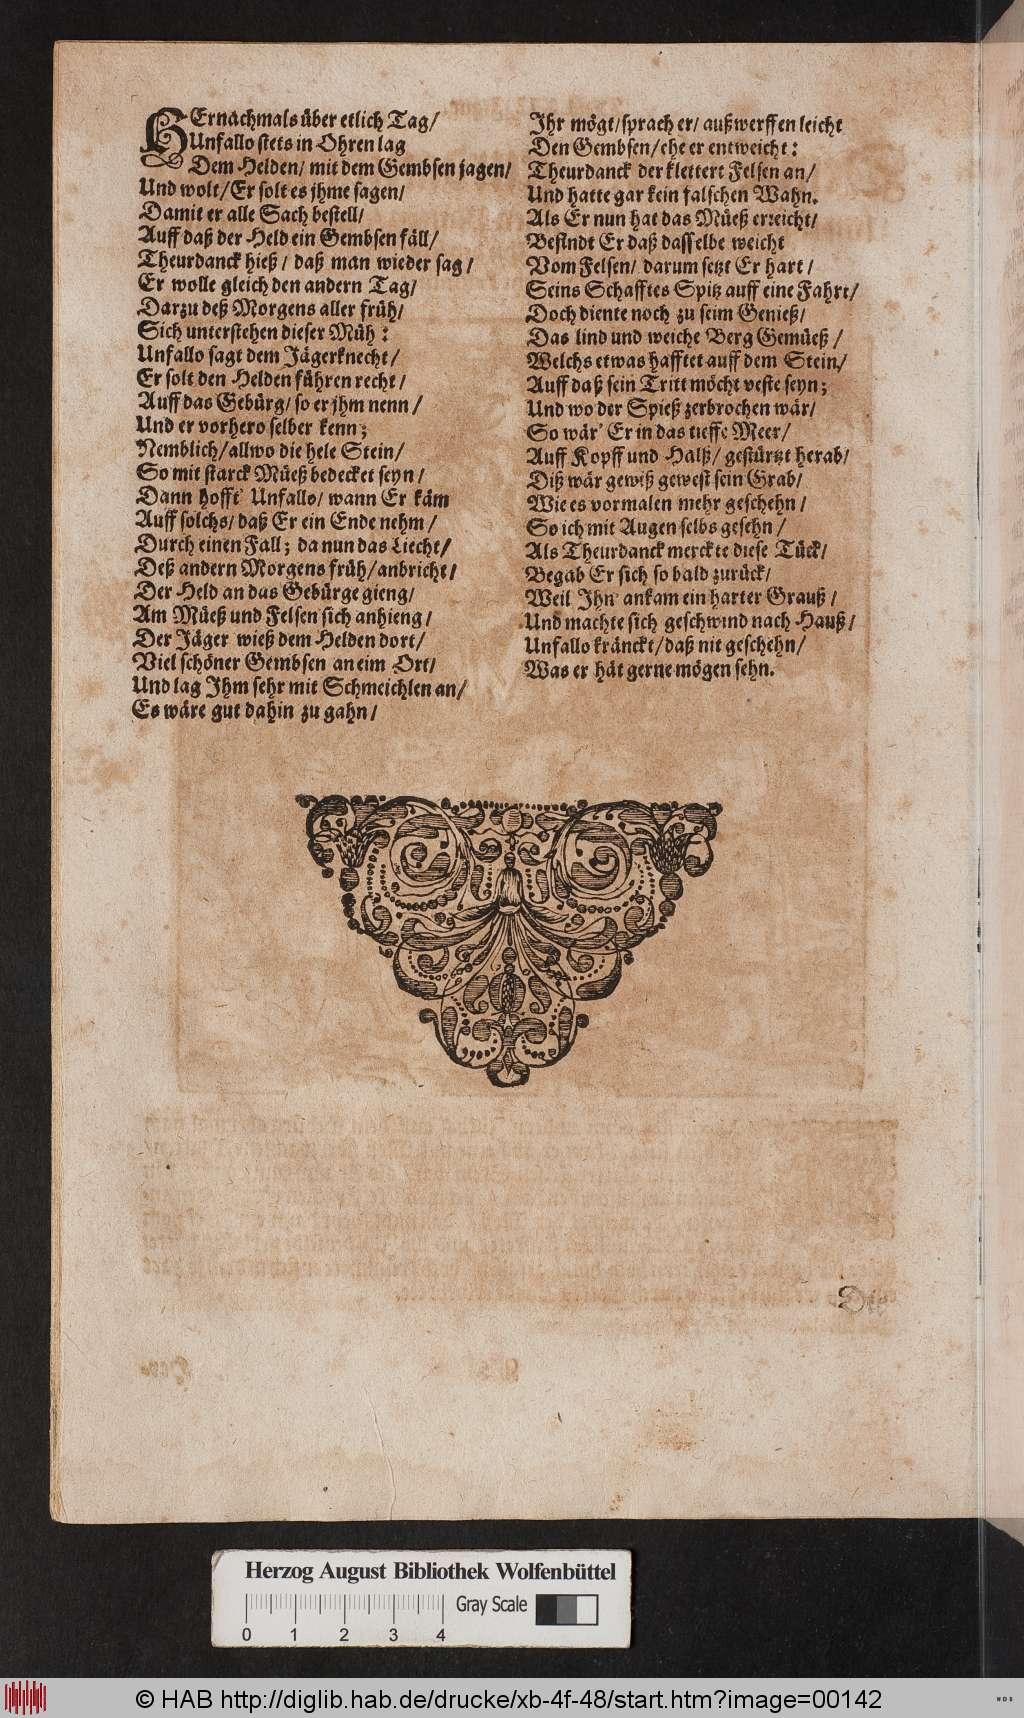 HErnachmals über etlich Tag/
Unfallo stets in Ohren lag
Dem Helden/ mit dem Gembsen jagen/
Und wolt/ Er solt es jhme sagen/
Damit er alle Sach bestell/
Auff daß der Held ein Gembsen fäll/
Theurdanck hieß/ daß man wieder sag/
Er wolle gleich den andern Tag/
Darzu deß Morgens aller früh/
Sich unterstehen dieser Müh:
Unfallo sagt dem Jägerknecht/
Er solt den Helden führen recht/
Auff das Gebürg/ so er jhm nenn/
Und er vorhero selber kenn;
Nemblich/ allwo die hele Stein/
So mit starck Müeß bedecket seyn/
Dann hofft' Unfallo/ wann Er käm
Auff solchs/ daß Er ein Ende nehm/
Durch einen Fall; da nun das Liecht/
Deß andern Morgens früh/ anbricht/
Der Held an das Gebürge gieng/
Am Müeß und Felsen sich anhieng/
Der Jäger wieß dem Helden dort/
Viel schöner Gembsen an eim Ort/
Und lag Ihm sehr mit Schmeichlen an/
Es wäre gut dahin zu gahn/
Ihr mögt/ sprach er/ außwerffen leicht
Den Gembsen/ ehe er entweicht:
Theurdanck der klettert Felsen an/
Und hatte gar kein falschen Wahn.
Als Er nun hat das Müeß erreicht/
Befindt Er daß dasselbe weicht
Vom Felsen/ darum setzt Er hart/
Seins Schafftes Spitz auff eine Fahrt/
Doch diente noch zu seim Genieß/
Das lind und weiche Berg Gemüeß/
Welchs etwas hafftet auff dem Stein/
Auff daß sein Tritt möcht veste seyn;
Und wo der Spieß zerbrochen wär/
So wär' Er in das tieffe Meer/
Auff Kopff und Halß/ gestürtzt herab/
Diß wär gewiß gewest sein Grab/
Wie es vormalen mehr geschehn/
So ich mit Augen selbs gesehn/
Als Theurdanck merckte diese Tück/
Begab Er sich so bald zurück/
Weil Ihn ankam ein harter Grauß/
Und machte sich geschwind nach Hauß/
Unfallo kränckt/ daß nit geschehn/
Was er hät gerne mögen sehn.
Die
Herzog August Bibliothek Wolfenbüttel
Gray Scale
0 1 2 3 4
© HAB http://diglib.hab.de/drucke/xb-4f-48/start.htm?image=00142